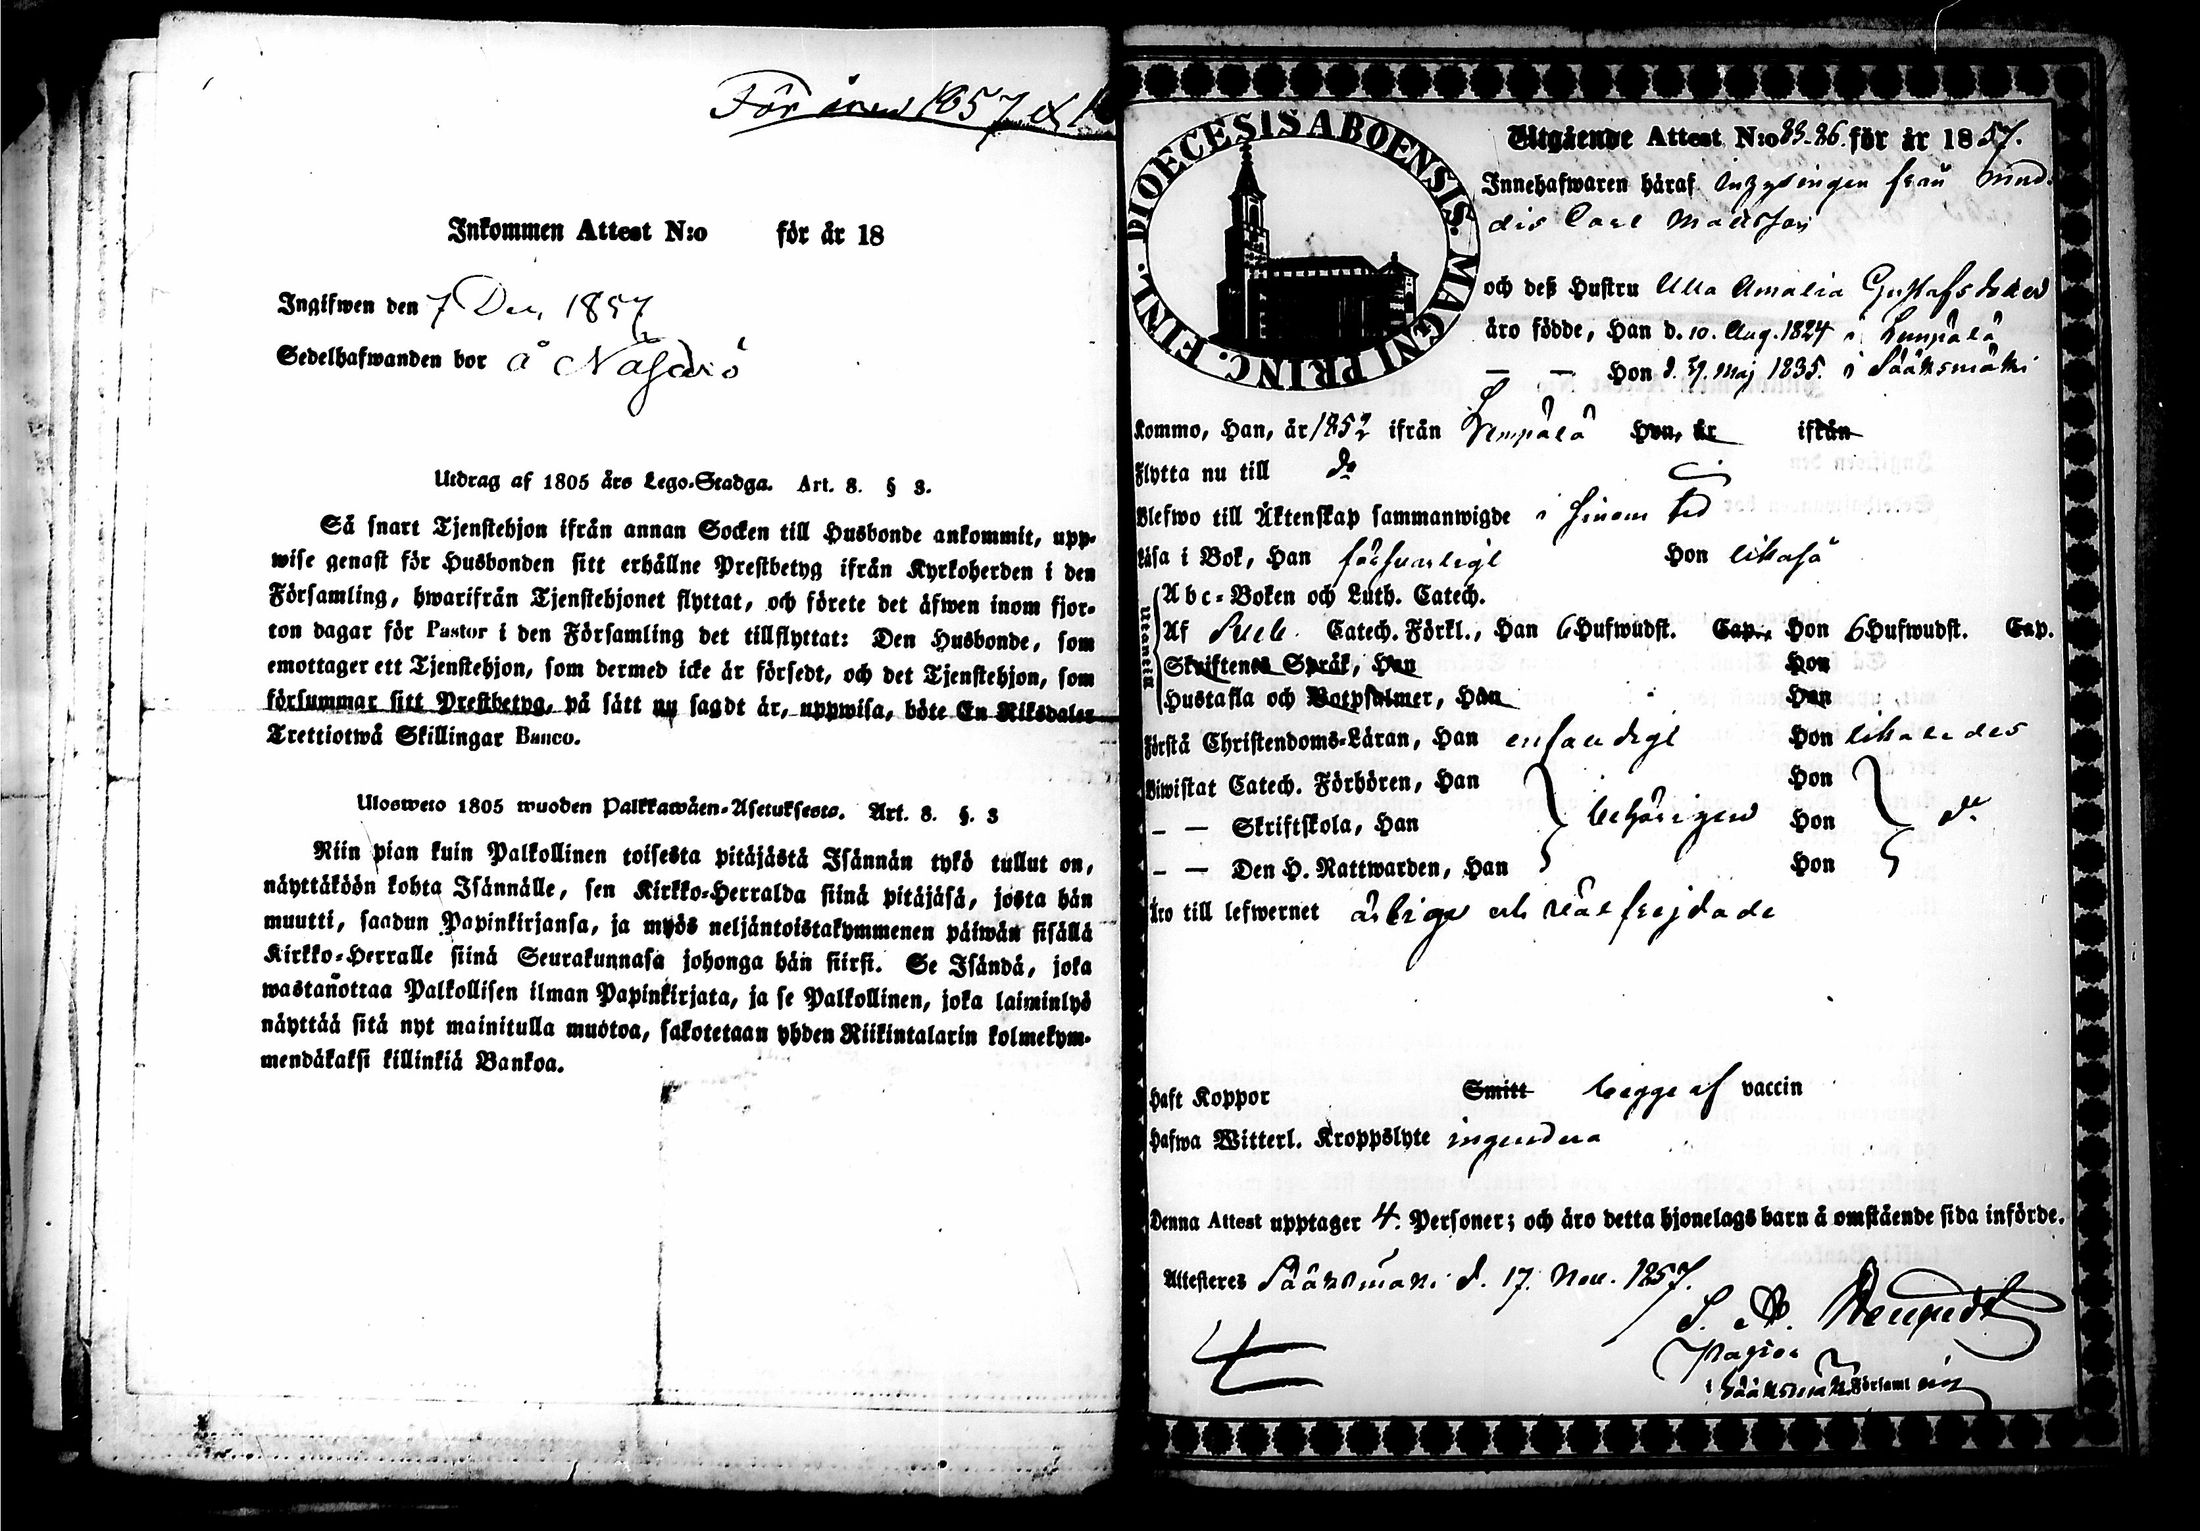 För åren 1857 &
Inkommen Attest N:o för år 18
Ingifwen den 7 Dec. 1857
Sedelhafwanden bor å
Utdrag af 1805 års Lego-Stadga. Art. 8. § 3.
Så snart Tjenstehjon ifrån annan Socken till Husbonde ankommit, upp-
wise genast för Husbonden sitt erhållne Prestbetyg ifrån Kyrkoherden i den
Församling, hwarifrån Tjenstehjonet flyttat, och förete det äfwen inom fjor-
ton dagar för Pastor i den Församling det tillflyttat: Den Husbonde, som
emottager ett Tjenstehjon, som dermed icke är försedt, och det Tjenstehjon, som
försummar sitt Prestbetyg, på sätt nu sagdt är, uppwisa, böte En Riksdaler
Trettiotwå Skillingar Banco.
Uloswero 1805 wuoden Palkkawäen-Asetuksesta. Art. 8. §. 3
Niin pian kuin Palkollinen toisesta pitäjästä Isännän tykö tullut on,
näyttäköön kohta Isännälle, sen Kirkko-Herralda siinä pitäjäsä, josta hän
muutti, saadun Papinkirjansa, ja myös neljäntoistakymmenen päiwän sisällä
Kirkko-Herralle siinä Seurakunnasa johonga hän siirsi. Se Isändä, joka
wastanottaa Palkollisen ilman Papinkirjata, ja se Palkollinen, joka laiminlyö
näyttää sitä nyt mainitulla muotoa, sakotetaan yhden Riikintalarin kolmekym-
mendäkaksi killinkiä Bankoa.
DIOECESIS ABOENSIS. MAGNI PRINC. FINL.
Utgående Attest N:o 83-86. för år 1857.
Innehafwaren häraf Inhysingen från
Carl Mattsson
och deß Hustru Ulla Amalia Gustafsdotter
äro födde, Han d. 10. Aug. 1824 i Lempälä
— — Hon d. 31. Maj 1835. i Sääksmäki
Kommo, Han, år 1852 ifrån Lempälä Hon, år ifrån
Flytta nu till do
Blefwo till Äktenskap sammanwigde i sinom tid
Läsa i Bok, Han försvarligt Hon likaså
Utantill
Abc-Boken och Luth. Catech.
Af Catech. Förkl., Han 6 Hufwudst. Cap., Hon 6 Hufwudst. Cap.
Skriftenes Språk, Han Hon
Hustafla och Botpsalmer, Han Hon
Förstå Christendoms-Läran, Han enfaldigt Hon likaledes
Biwistat Catech. Förhören, Han Hon
— — Skriftskola, Han behörigen Hon do
— — Den H. Nattwarden, Han Hon
Äro till lefwernet ärlige och väl frejdade
Haft Koppor Smitt begge af vaccin
Hafwa Witterl. Kroppslyte ingendera
Denna Attest upptager 4. Personer; och äro detta hjonelags barn å omstående sida införde.
Attesteres Sääksmäki d. 17. Nov. 1857.
i Sääksmäki Församling